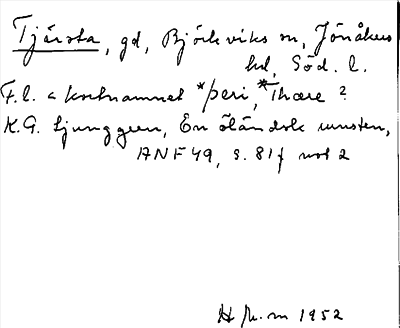 Tjärsta, gd, Björkviks sn, Jönåkers
hd, Söd. l.
F.l. < kortnamnet *þeri, *Thære?
K.G. Ljunggren, En öländsk runsten,
ANF 49, s. 81 f not 2
1952